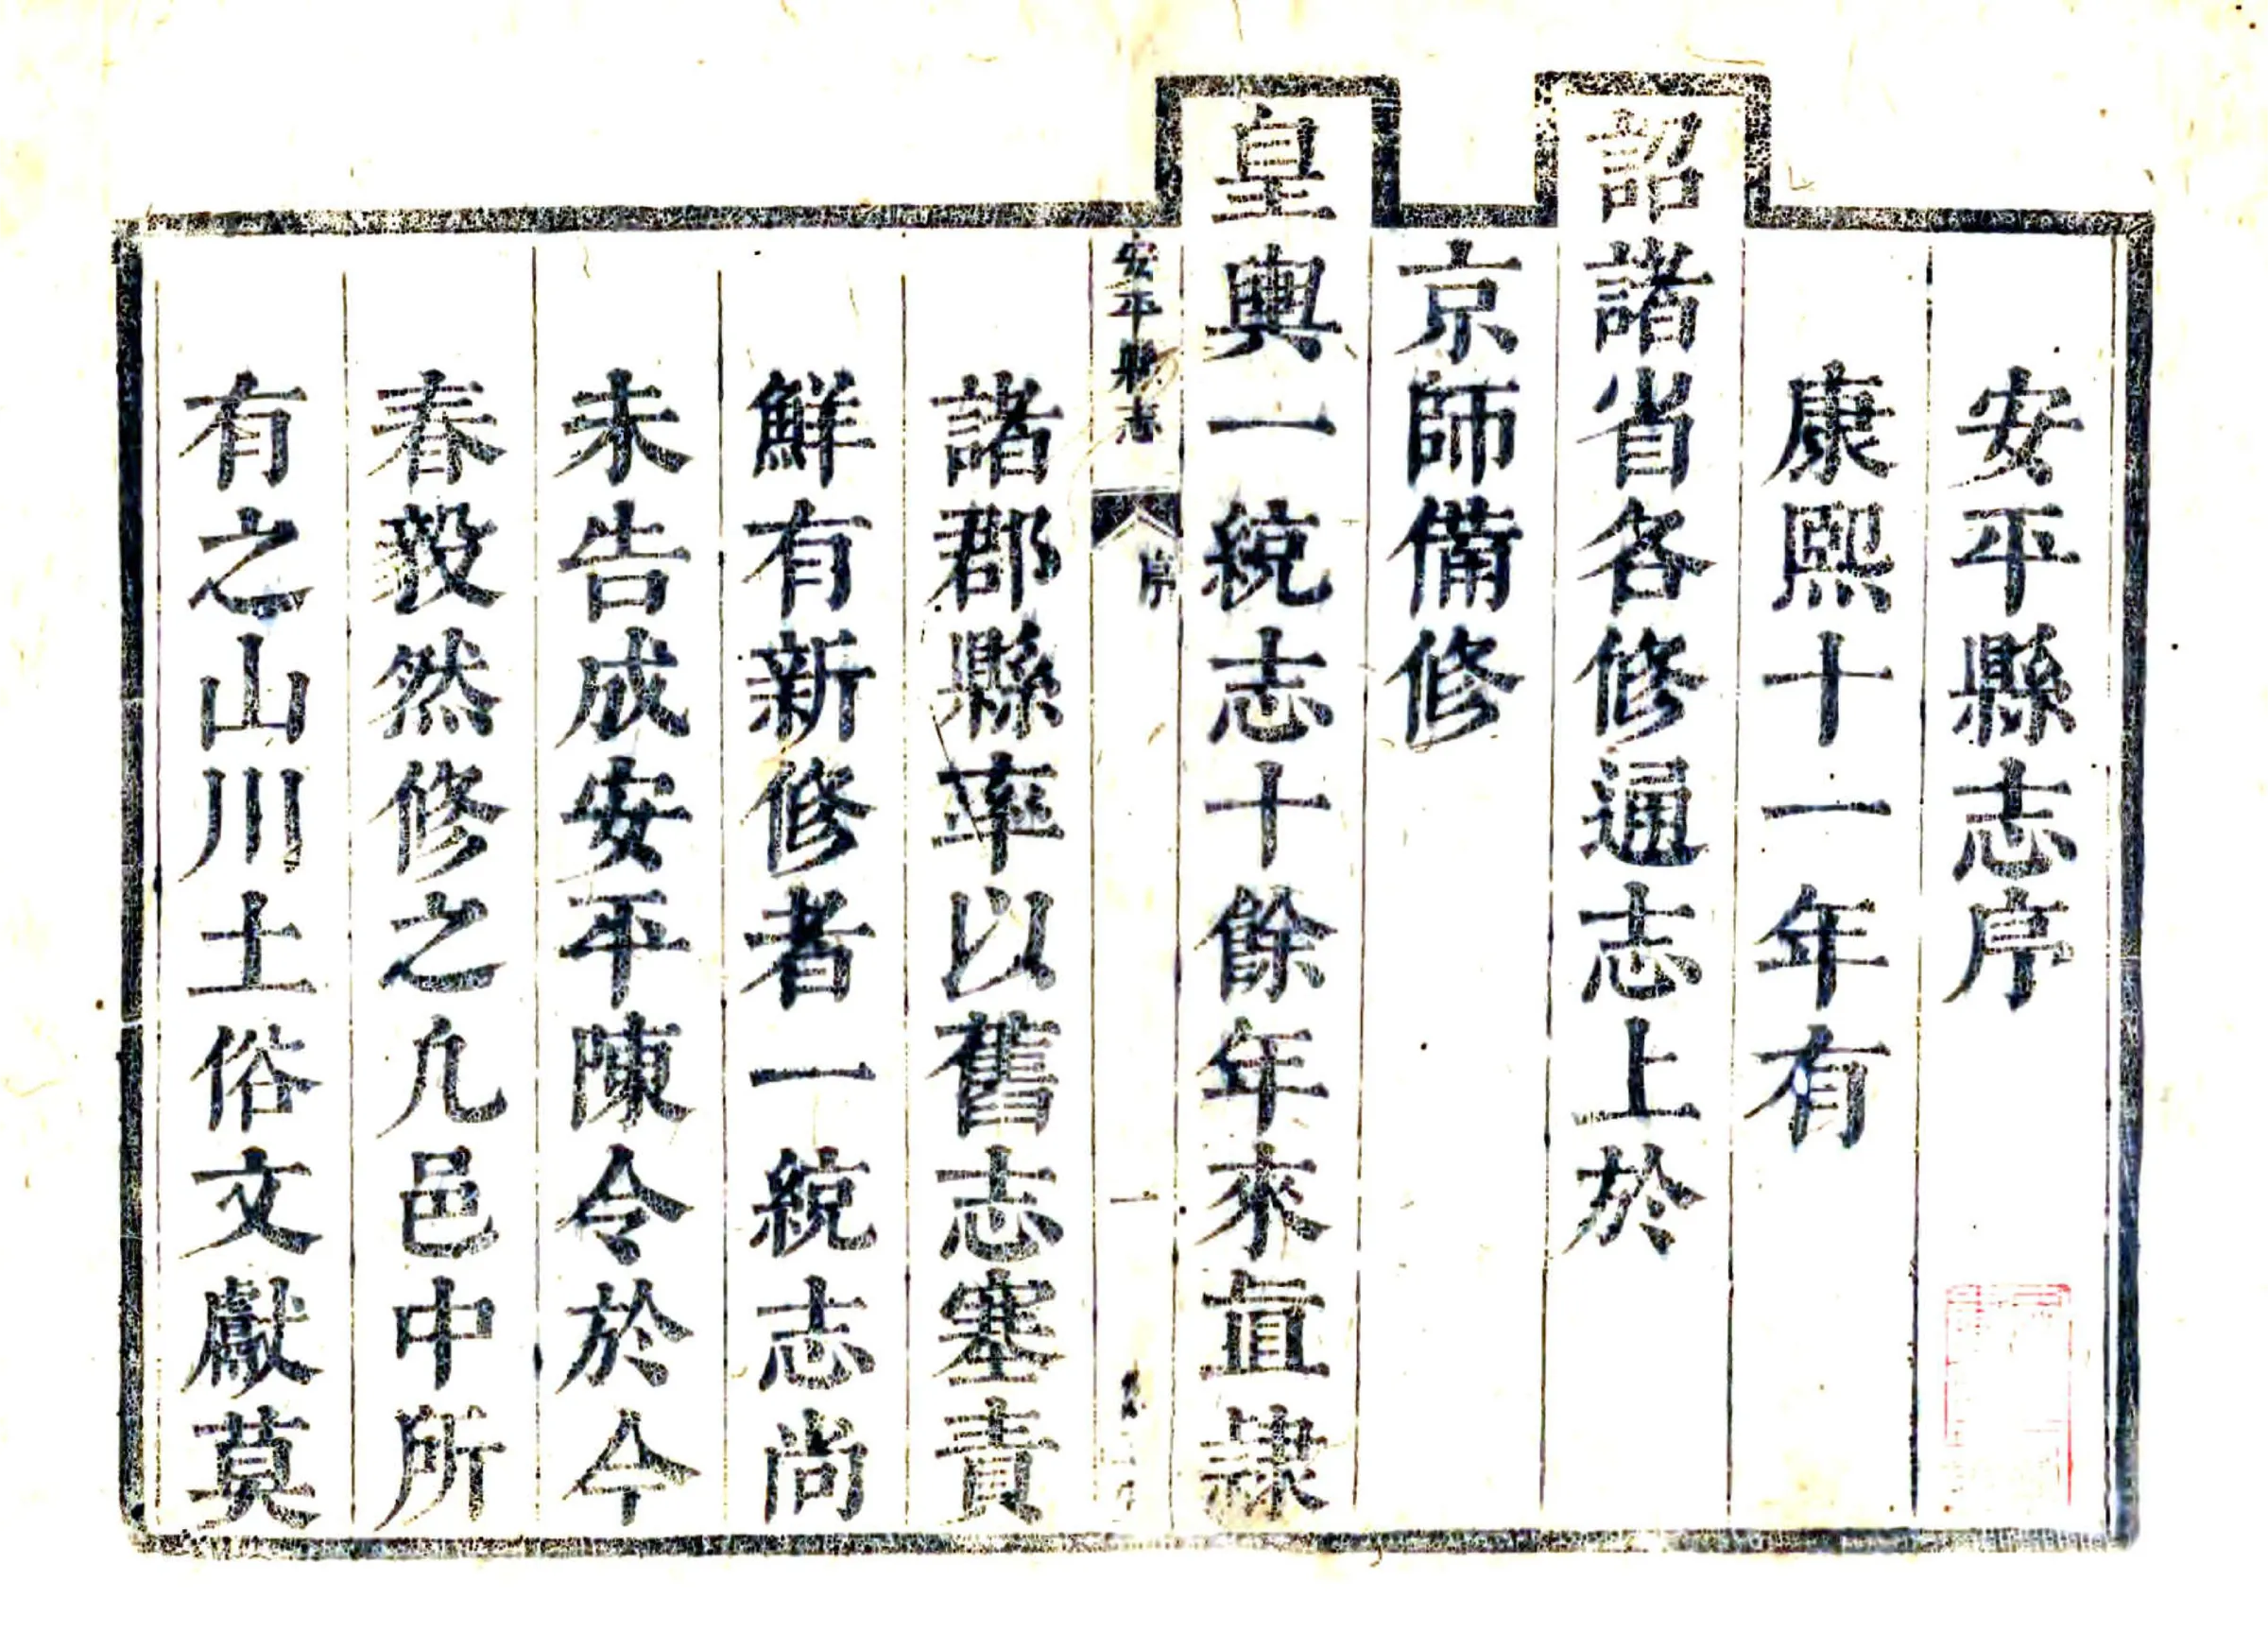 安平縣志序
康熙十一年有
詔諸省各修通志上於
京師備修
皇輿一統志十餘年來直隷
安平縣志
序
一
諸郡縣率以舊志塞責
鮮有新修者一統志尚
未告成安平陳令於今
春毅然修之凡邑中所
有之山川土俗文獻莫